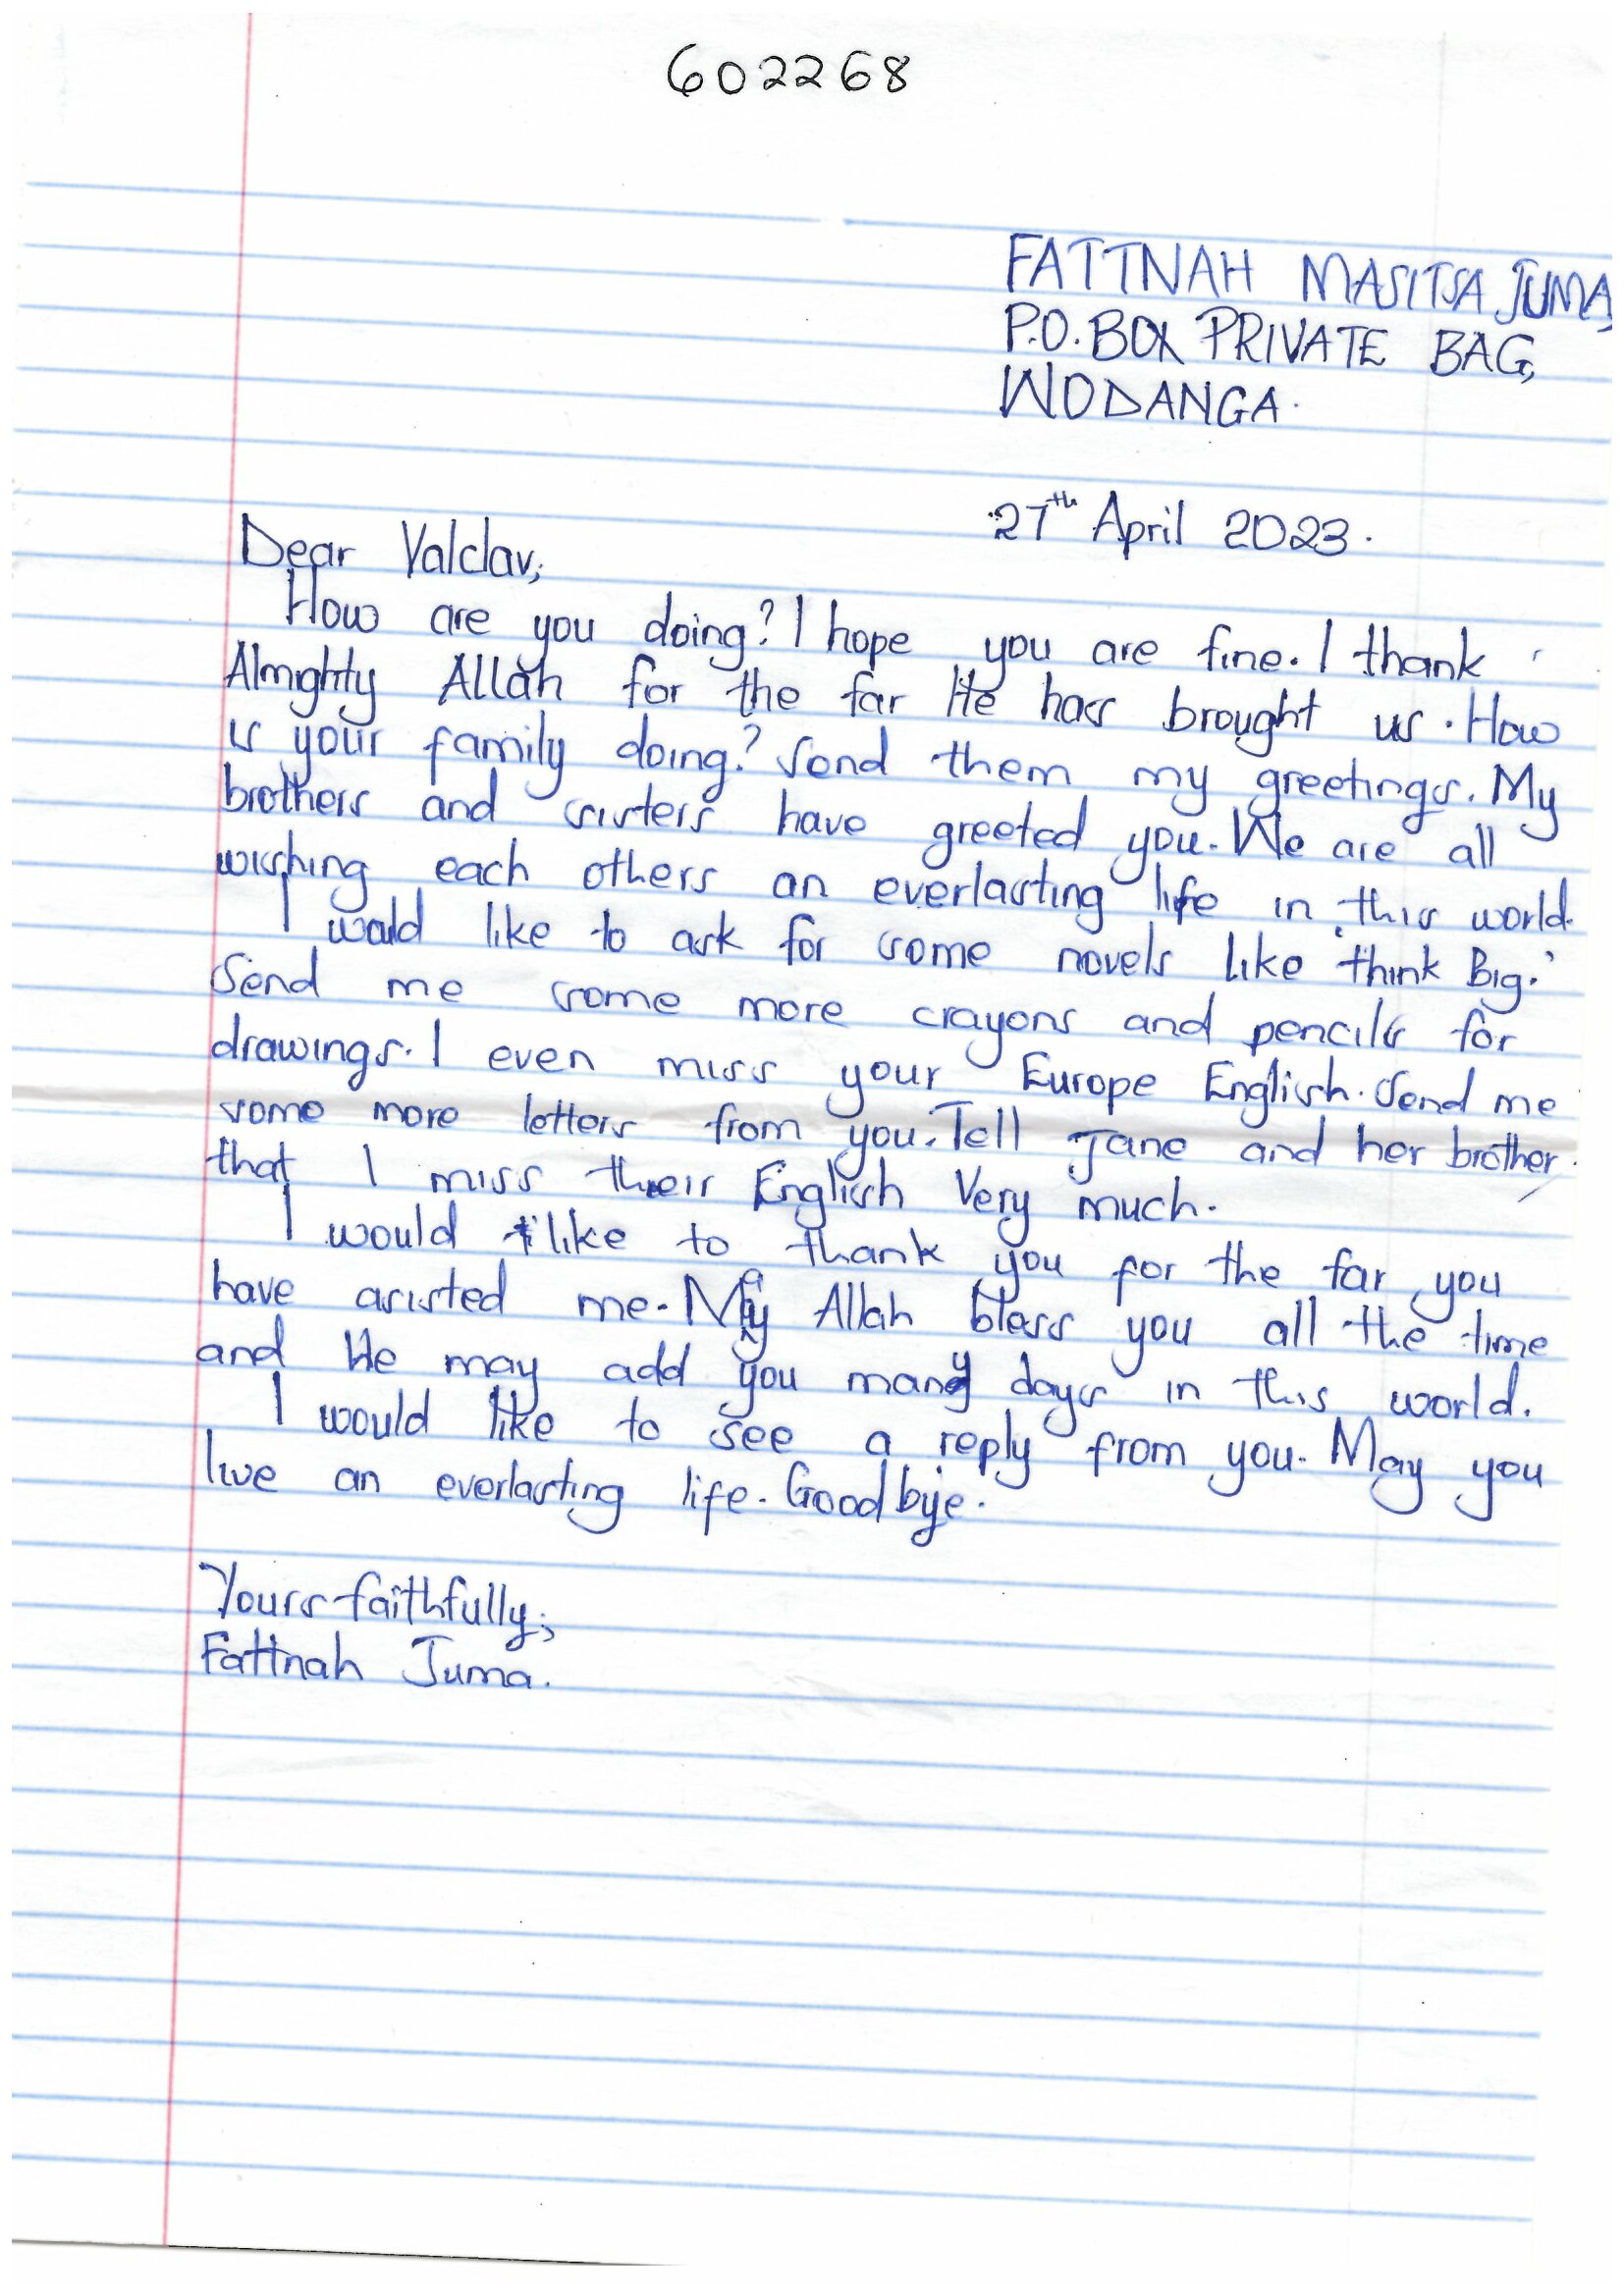 602268
FATTNAH MASITSA JUMA,
P.O. BOX PRIVATE BAG,
WODANGA.
27th April 2023.
Dear Valclav,
How are you doing? I hope you are fine. I thank
Almighty Allah for the far He has brought us. How
is your family doing? Send them my greetings. My
brothers and sisters have greeted you. We are all
wishing each others an everlasting life in this world.
I would like to ask for some novels like 'think Big.'
Send me some more crayons and pencils for
drawings. I even miss your Europe English. Send me
some more letters from you. Tell Jane and her brother
that I miss their English Very much.
I would like to thank you for the far you
have assisted me. May Allah bless you all the time
and He may add you many days in this world.
I would like to see a reply from you. May you
live an everlasting life. Good bye.
Yours faithfully,
Fattnah Juma.